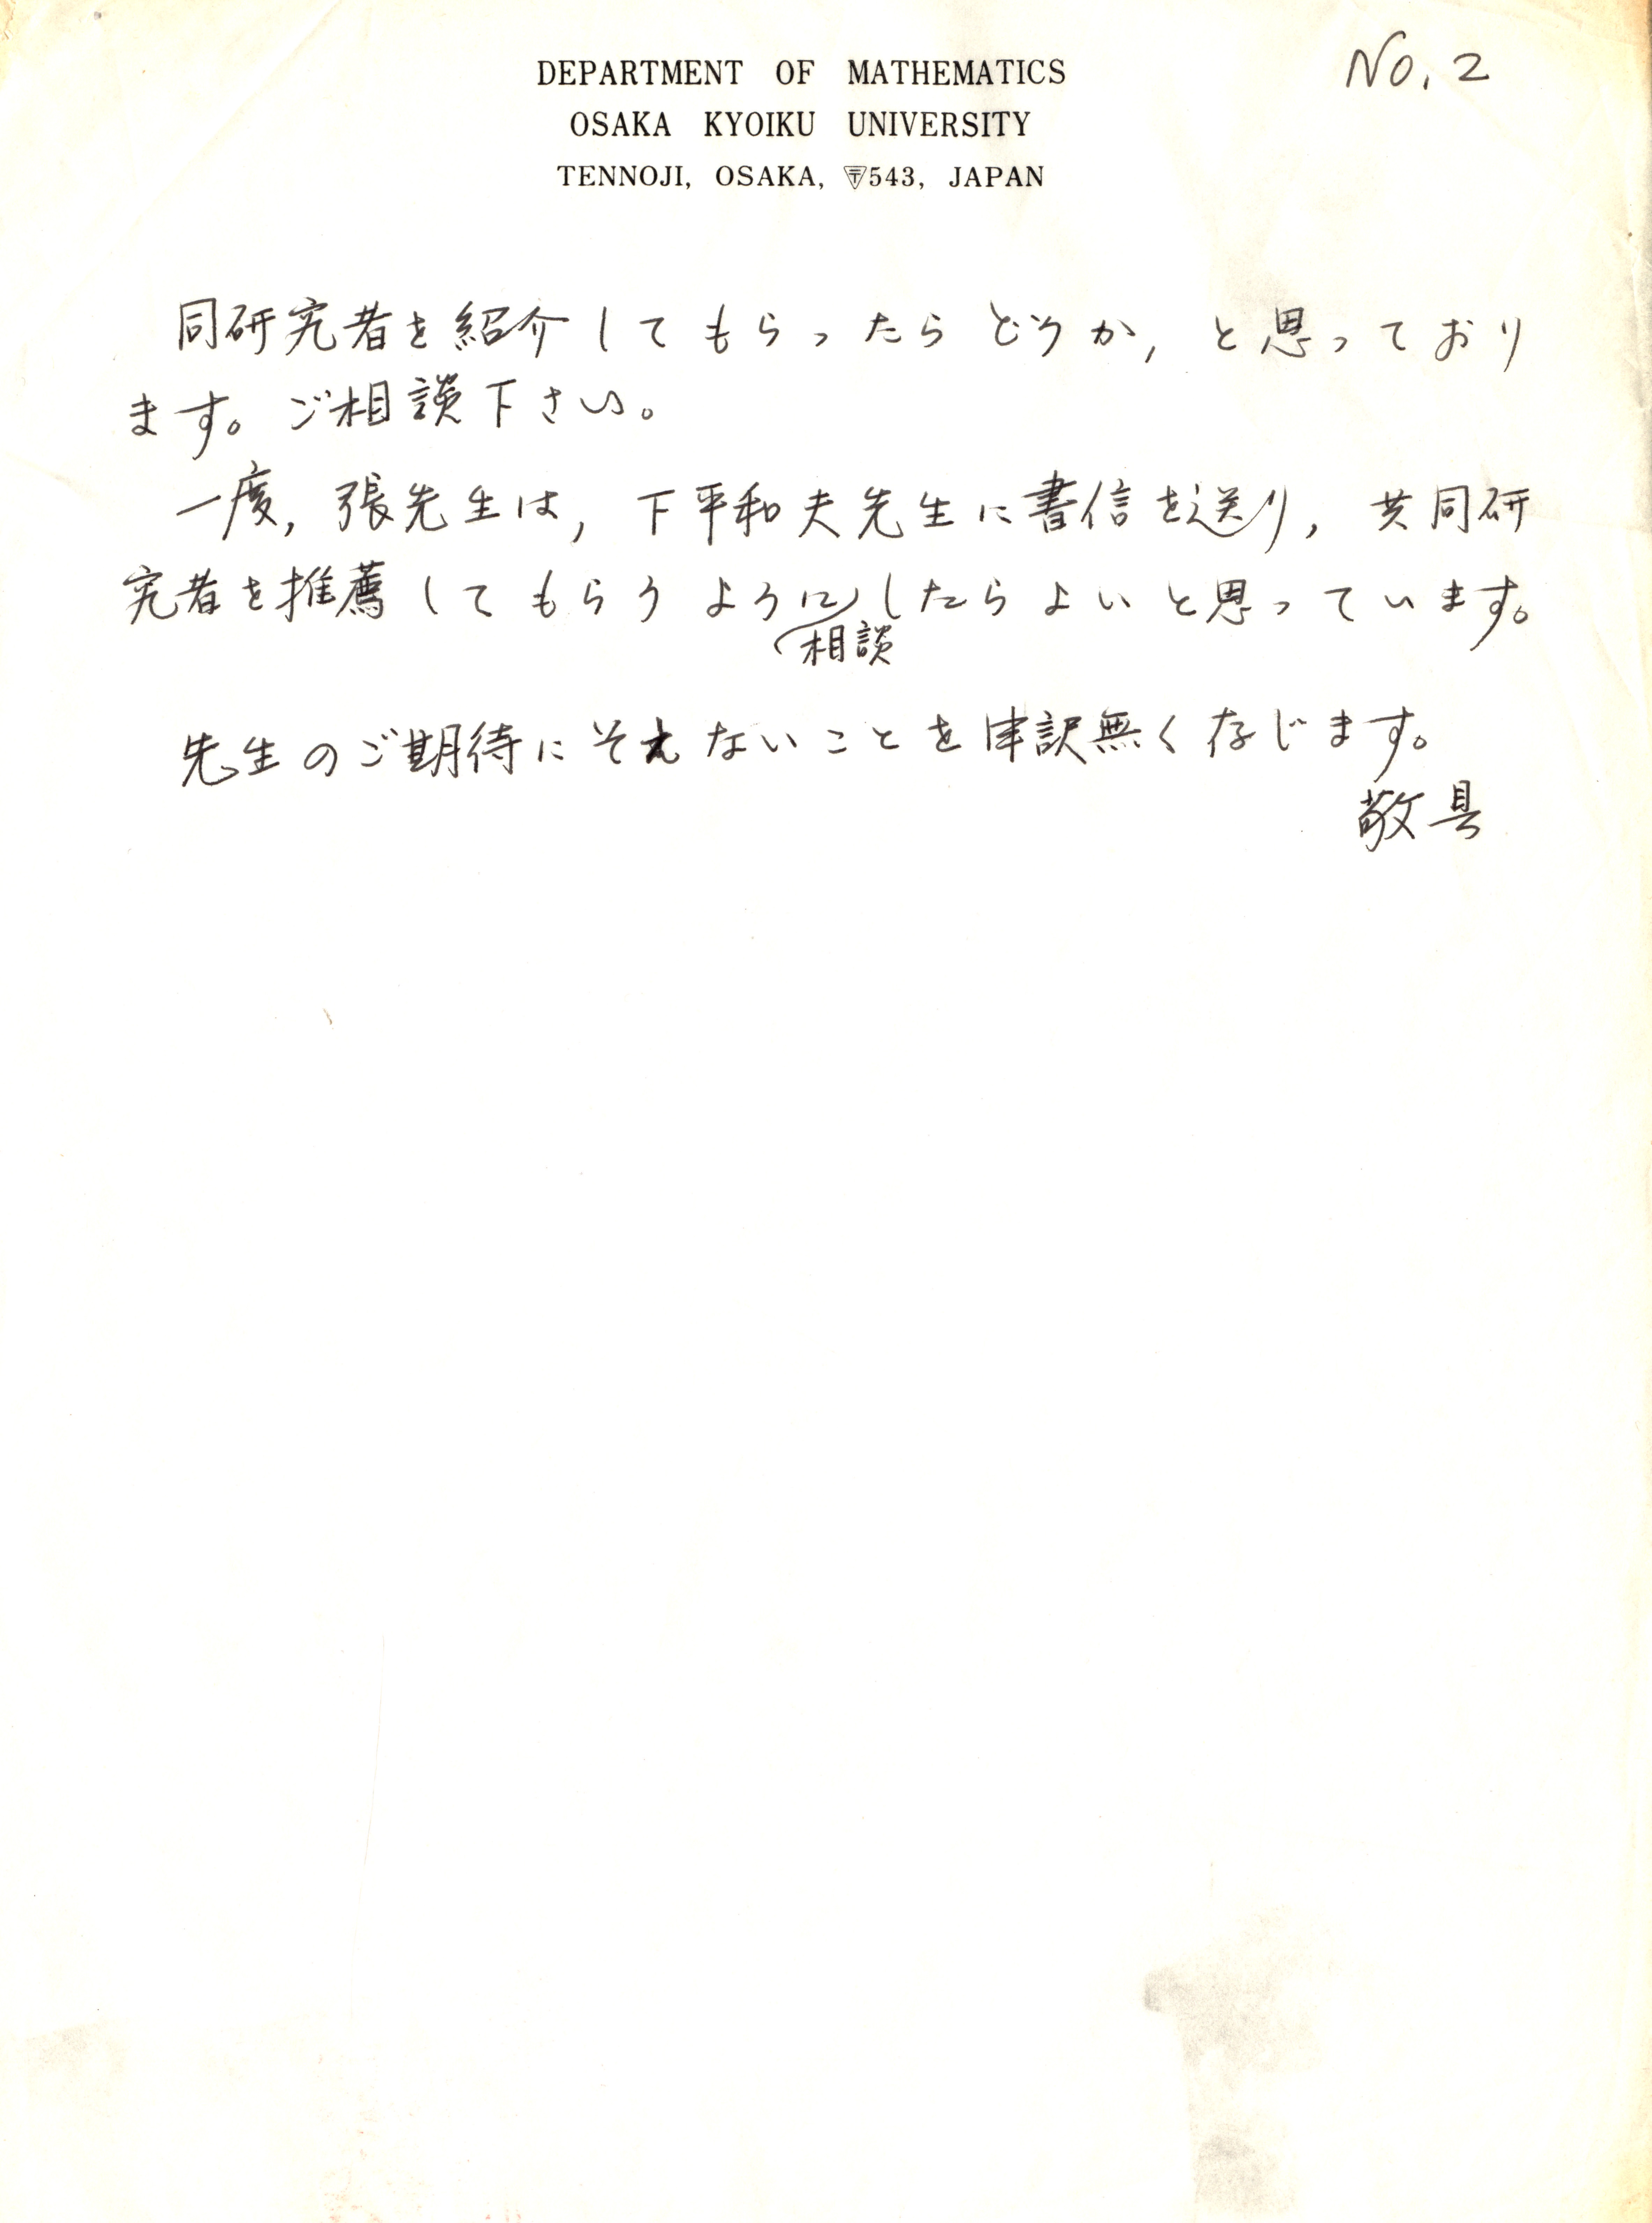 No. 2
DEPARTMENT OF MATHEMATICS
OSAKA KYOIKU UNIVERSITY
TENNOJI, OSAKA, 〒543, JAPAN
同研究者を紹介してもらったらどうか, と思っており
ます。ご相談下さい。
一度, 張先生は, 下平和夫先生に書信を送り, 共同研
究者を推薦してもらうように相談したらよいと思っています。
先生のご期待にそえないことを申訳無く存じます。
敬具